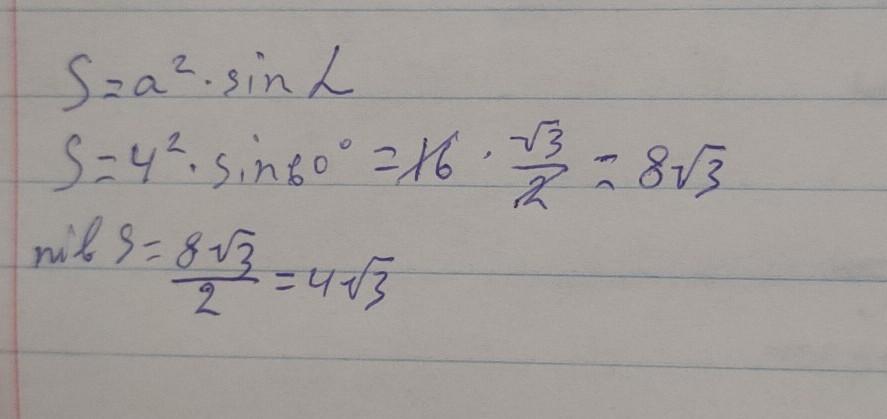 S = a² · sin α
S = 4² · sin 60° = 16 · √3/2 = 8√3
пів S = 8√3/2 = 4√3